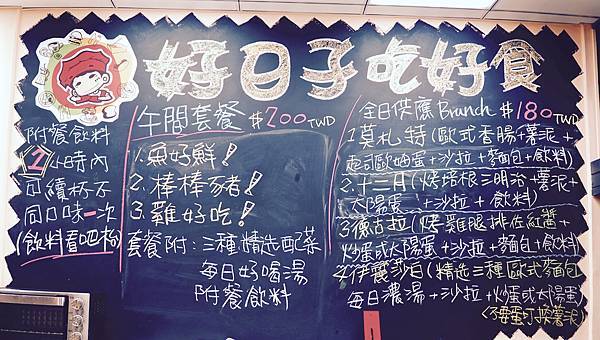 好日子吃好食
附餐飲料
2小時內
可續杯不
同口味一次
(飲料看吧檯)
午間套餐 $200TWD
1.魚好鮮!
2.棒棒豬!
3.雞好吃!
套餐附:三種精选配菜
每日好喝湯
附餐飲料
全日供應Brunch $180TWD
1.莫札特(歐式香腸+薯泥+
起司歐姆蛋+沙拉+麵包+飲料)
2.十二月(烤培根三明治+薯泥+
太陽蛋+沙拉+飲料)
3.德古拉(烤雞腿排佐紅醬+
炒蛋或太陽蛋+沙拉+麵包+飲料)
4.伊麗莎白(精选三種歐式麵包
每日濃湯+沙拉+炒蛋或太陽蛋)
<不要蛋可換薯泥>